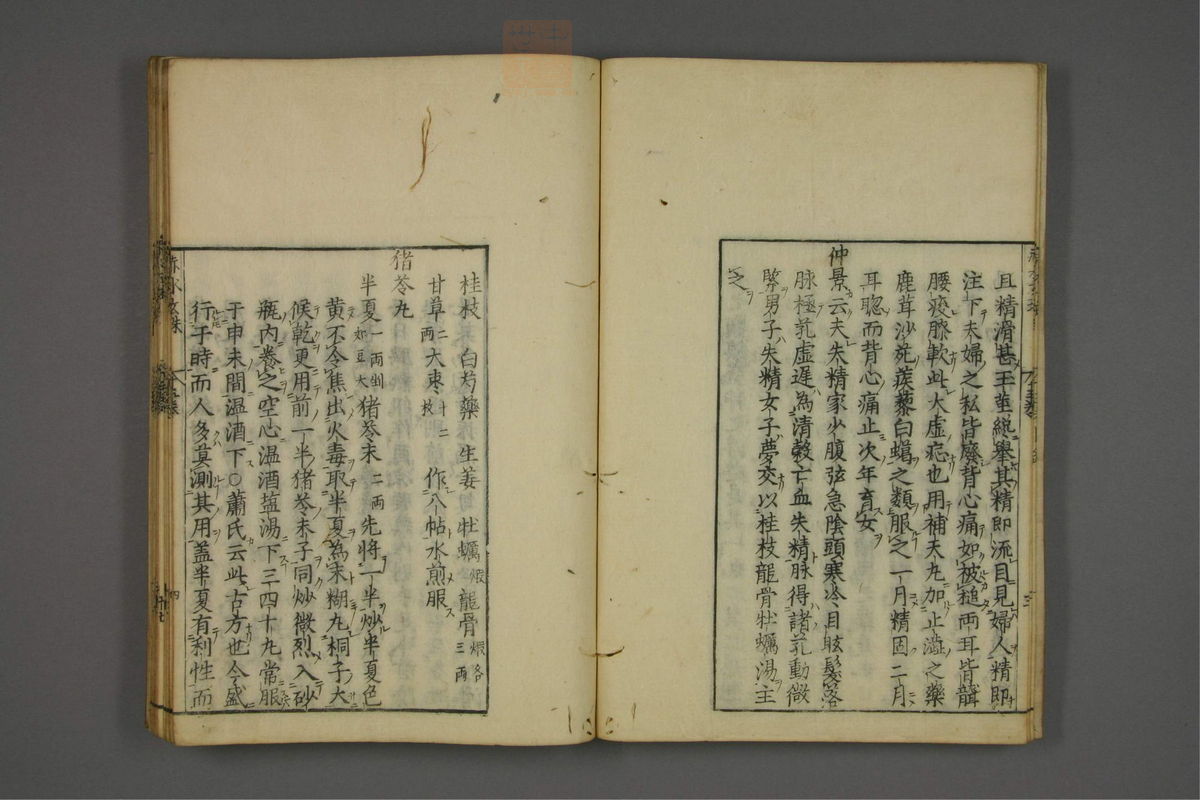 且精滑甚玉莖纔舉其精即流目見婦人精即
注下夫婦之私皆廢背心痛如被槌両耳皆聾
腰痠膝軟此大虛也用補天丸加止澁之藥
鹿茸沙苑蒺藜白蝎之類服之一月精固二月
耳聡而背心痛止次年育女
仲景云夫失精家少腹弦急陰頭寒冷目眩髮落
脉極芤虛遲為清穀亡血失精脉得諸芤動微
緊男子失精女子夢交以桂枝龍骨牡蠣湯主
之
桂枝 白芍藥 生姜 牡蠣煅 龍骨煅各三両
甘草二両 大枣十二枚 作八帖水煎服
猪苓丸
半夏一両剉如豆大 猪苓末二両 先將一半炒半夏色
黄不令焦出火毒取半夏為末糊丸桐子大
候乾更用前一半猪苓末子同炒微烈入砂
瓶内養之空心温酒塩湯下三四十丸常服
于申未間温酒下○蕭氏云此古方也今盛
行于時而人多莫測其用盖半夏有利性而